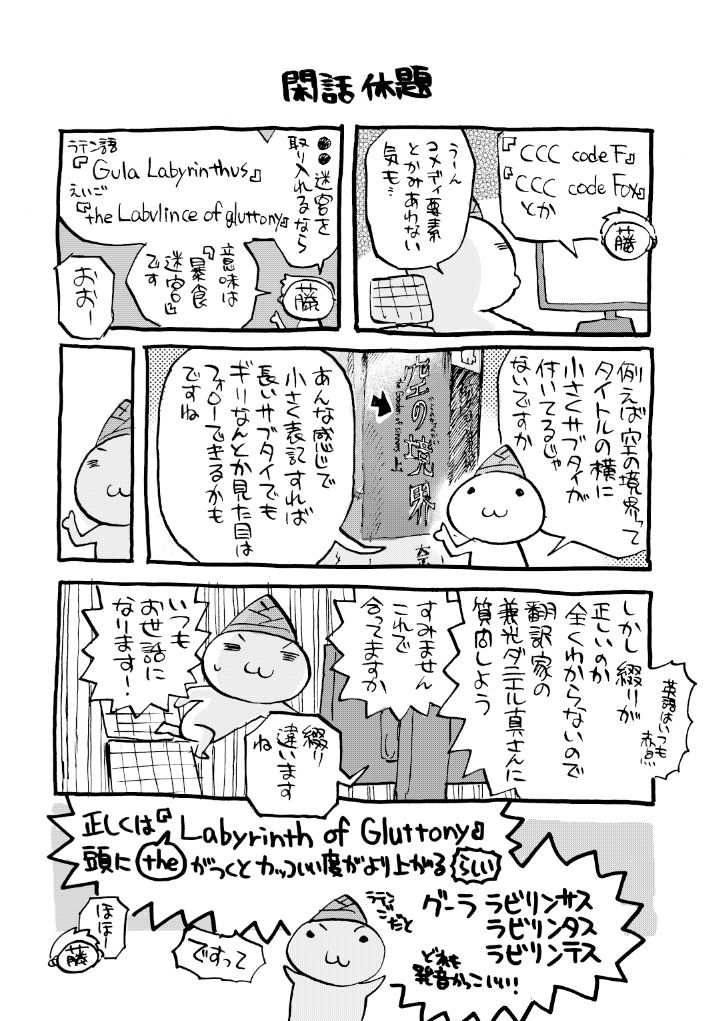 閑話休題
『CCC code F』
『CCC code Fox』
とか
藤
うーん
コメディ要素
とかみあわない
気も…
●●迷宮を
取り入れるなら
ラテン語
『Gula Labyrinthus』
えいご
『the Labulince of gluttony』
藤
意味は
『暴食
迷宮』
です
おおー
例えば空の境界って
タイトルの横に
小さくサブタイが
付いてるじゃ
ないですか
空の境界
the Garden of sinners
あんな感じで
小さく表記すれば
長いサブタイでも
ギリなんとか見た目は
フォローできるかも
ですね
しかし綴りが
正しいのか
全くわからないので
翻訳家の
兼光ダニエル真さんに
質問しよう
英語はいつも
赤点…
すみません
これで
合ってますか
いつも
お世話に
なります!
綴り
違います
ね
正しくは『Labyrinth of Gluttony』
頭に the がつくとカッコいい度がより上がる らしい
ラテン
ごだと
グーラ ラビリンサス
ラビリンタス
ラビリンテス
どれも
発音かっこいい!!
ですって
ほほー
藤